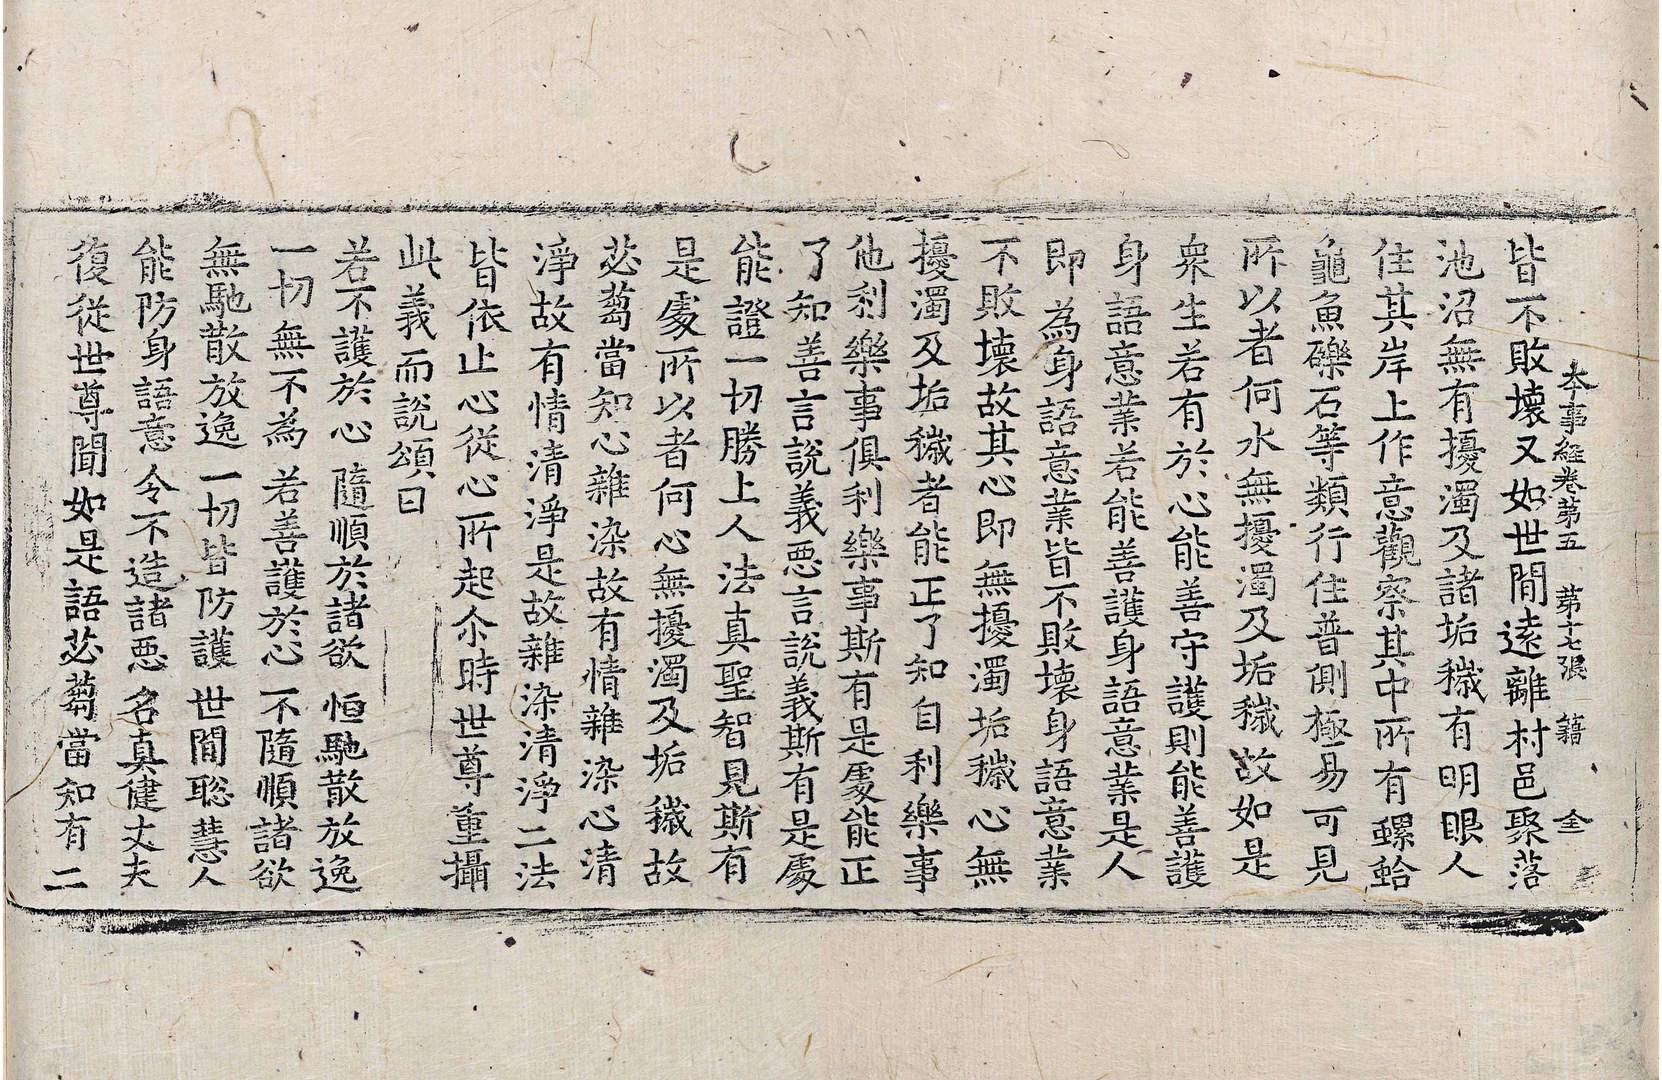 本事經卷第五 第十七張 籍 全
皆不敗壞又如世間遠離村邑聚落
池沼無有擾濁及諸垢穢有明眼人
住其岸上作意觀察其中所有螺蛤
龜魚礫石等類行住普側極易可見
所以者何水無擾濁及垢穢故如是
衆生若有於心能善守護則能善護
身語意業若能善護身語意業是人
即為身語意業皆不敗壞身語意業
不敗壞故其心即無擾濁垢穢心無
擾濁及垢穢者能正了知自利樂事
他利樂事俱利樂事斯有是處能正
了知善言說義惡言說義斯有是處
能證一切勝上人法真聖智見斯有
是處所以者何心無擾濁及垢穢故
苾蒭當知心雜染故有情雜染心清
淨故有情清淨是故雜染清淨二法
皆依止心從心所起尒時世尊重攝
此義而說頌曰
若不護於心 隨順於諸欲 恒馳散放逸
一切無不為 若善護於心 不隨順諸欲
無馳散放逸 一切皆防護 世間聡慧人
能防身語意 令不造諸惡 名真健丈夫
復從世尊聞如是語苾蒭當知有二